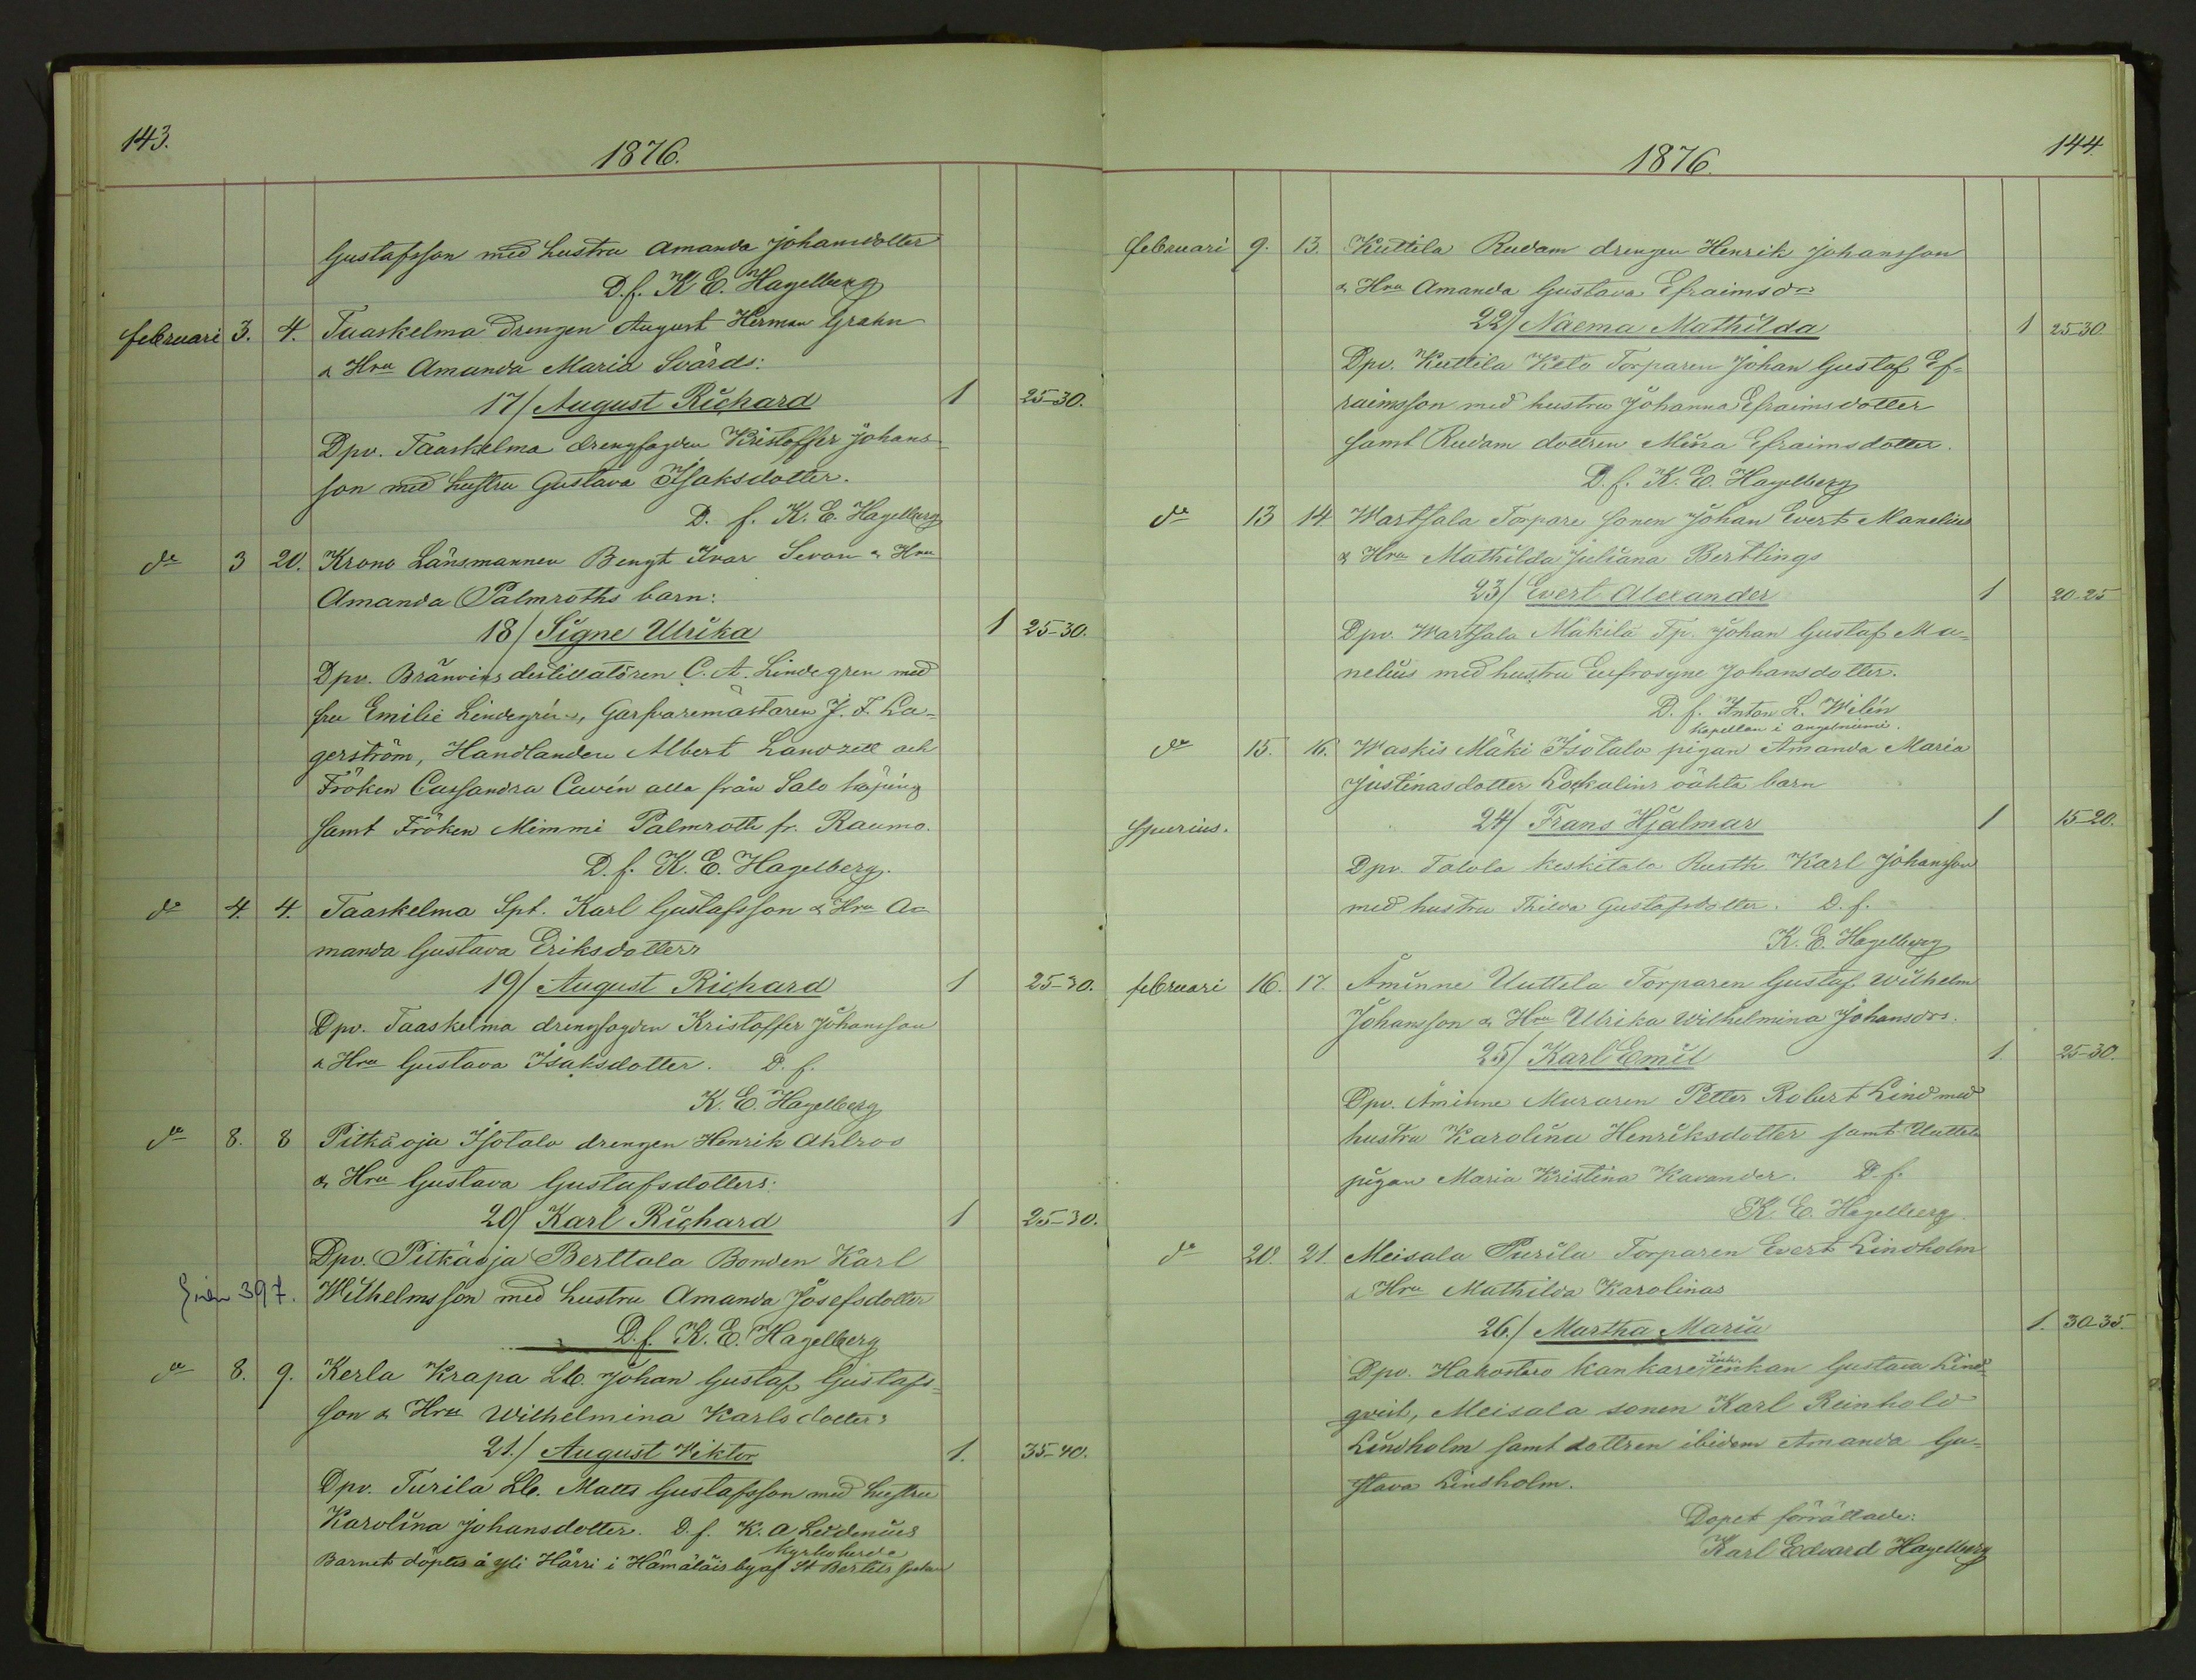 143.
1876.
Gustafsson med hustru Amanda Johansdotter
D.f. K E. Hagelberg
februari 3. 4. Taaskelma drengen August Herman Grahn
& Hru Amanda Maria Svärds:
17/ August Richard 1 25-30.
Dpv. Taaskelma drengfogden Kristoffer Johans
son med hustru Gustava Isaksdotter.
D. f. K. E. Hagelberg
do 3 20. Krono Länsmannen Bengt Ivar Sevon & Hru
Amanda Palmroths barn:
18/ Signe Ulrika 1 25-30.
Dpv. Bränvins destillatören C. A. Lindegren med
fru Emilie Lindegren, Garfvaremästaren J. F. La-
gerström, Handlanden Albert Landzett och
Fröken Cassandra Cavén alla från Salo köping
samt Fröken Mimmi Palmroth fr. Raumo.
D. f. K. E. Hagelberg.
do 4. 4. Taaskelma Spt. Karl Gustafsson & Hru A=
manda Gustava Eriksdotters
19/ August Richard 1 25-30.
Dpv. Taaskelma drengfogden Kristoffer Johansson
& Hru Gustava Isaksdotter. D. f.
K. E. Hagelberg
do 8. 8 Pitkäoja Isotalo drengen Henrik Ahlroos
& Hru Gustava Gustafsdotters:
20/ Karl Richard 1 25-30.
Dpv. Pitkäoja Berttala Bonden Karl
397. Wilhelmsson med hustru Amanda Josefsdotter
D.f. K. E. Hagelberg
do 8. 9. Kerla Krapa Lb. Johan Gustaf Gustafs-
son & Hru Wilhelmina Karlsdotters
21./ August Viktor 1. 35-40.
Dpv. Turila Lb. Matts Gustafsson med hustru
Karolina Johansdotter. D. f. K. A Leidenius
Kyrkoherde
Barnet döptes å Yli Härri i Hämäläis by af St Bertils socken
144
1876.
februari 9. 13. Kuttila Rudam drengen Henrik Johansson
& Hru Amanda Gustava Efraimsdrs
22/ Naema Mathilda 1 25-30.
Dpv. Kuttila Keto Torparen Johan Gustaf Ef-
raimsson med hustru Johanna Efraimsdotter
samt Rudam dottren Mina Efraimsdotter.
D. f. K. E. Hagelberg
do 13 14 Wartsala Torpare sonen Johan Evert Manelius
& Hru Mathilda Juliana Bertlings
23/ Evert Alexander 1 20-25
Dpv. Wartsala Mäkilä Tp. Johan Gustaf Ma-
nelius med hustru Eufrosyne Johansdotter.
D. f. Anton L. Wilén
Kapellan i Angelniemi.
do 15. 16. Waskis Mäki Isotalo pigan Amanda Maria
Justinasdotter oäkta barn
Spurius. 24/ Frans Hjalmar 1 15-20.
Dpv. Talola keskitalo Rusth. Karl Johansson
med hustru Thilda Gustafsdotter. D. f.
K. E. Hagelberg
februari 16. 17. Åminne Uuttela Torparen Gustaf Wilhelm
Johansson & Hru Ulrika Wilhelmina Johansdrs.
25/ Karl Emil 1. 25-30.
Dpv. Åminne Muraren Petter Robert Lind med
hustru Karolina Henriksdotter samt Uuttela
pigan Maria Kristina Kavander. D. f.
K. E. Hagelberg.
do 20. 21. Meisala Purila Torparen Evert Lindholm
& Hru Mathilda Karolinas
26./ Martha Maria 1. 30-35.
Dpv. Hakostaro Kankare enkan Gustava Lind-
qvist, Meisala sonen Karl Reinhold
Lindholm samt dottren ibidem Amanda Gu-
stava Lindholm.
Dopet förrättade:
Karl Edvard Hagelberg